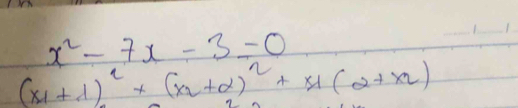 x² - 7x - 3 = 0
(x1 + 1)² + (x2 + 2)² + x1 (2 + x2)